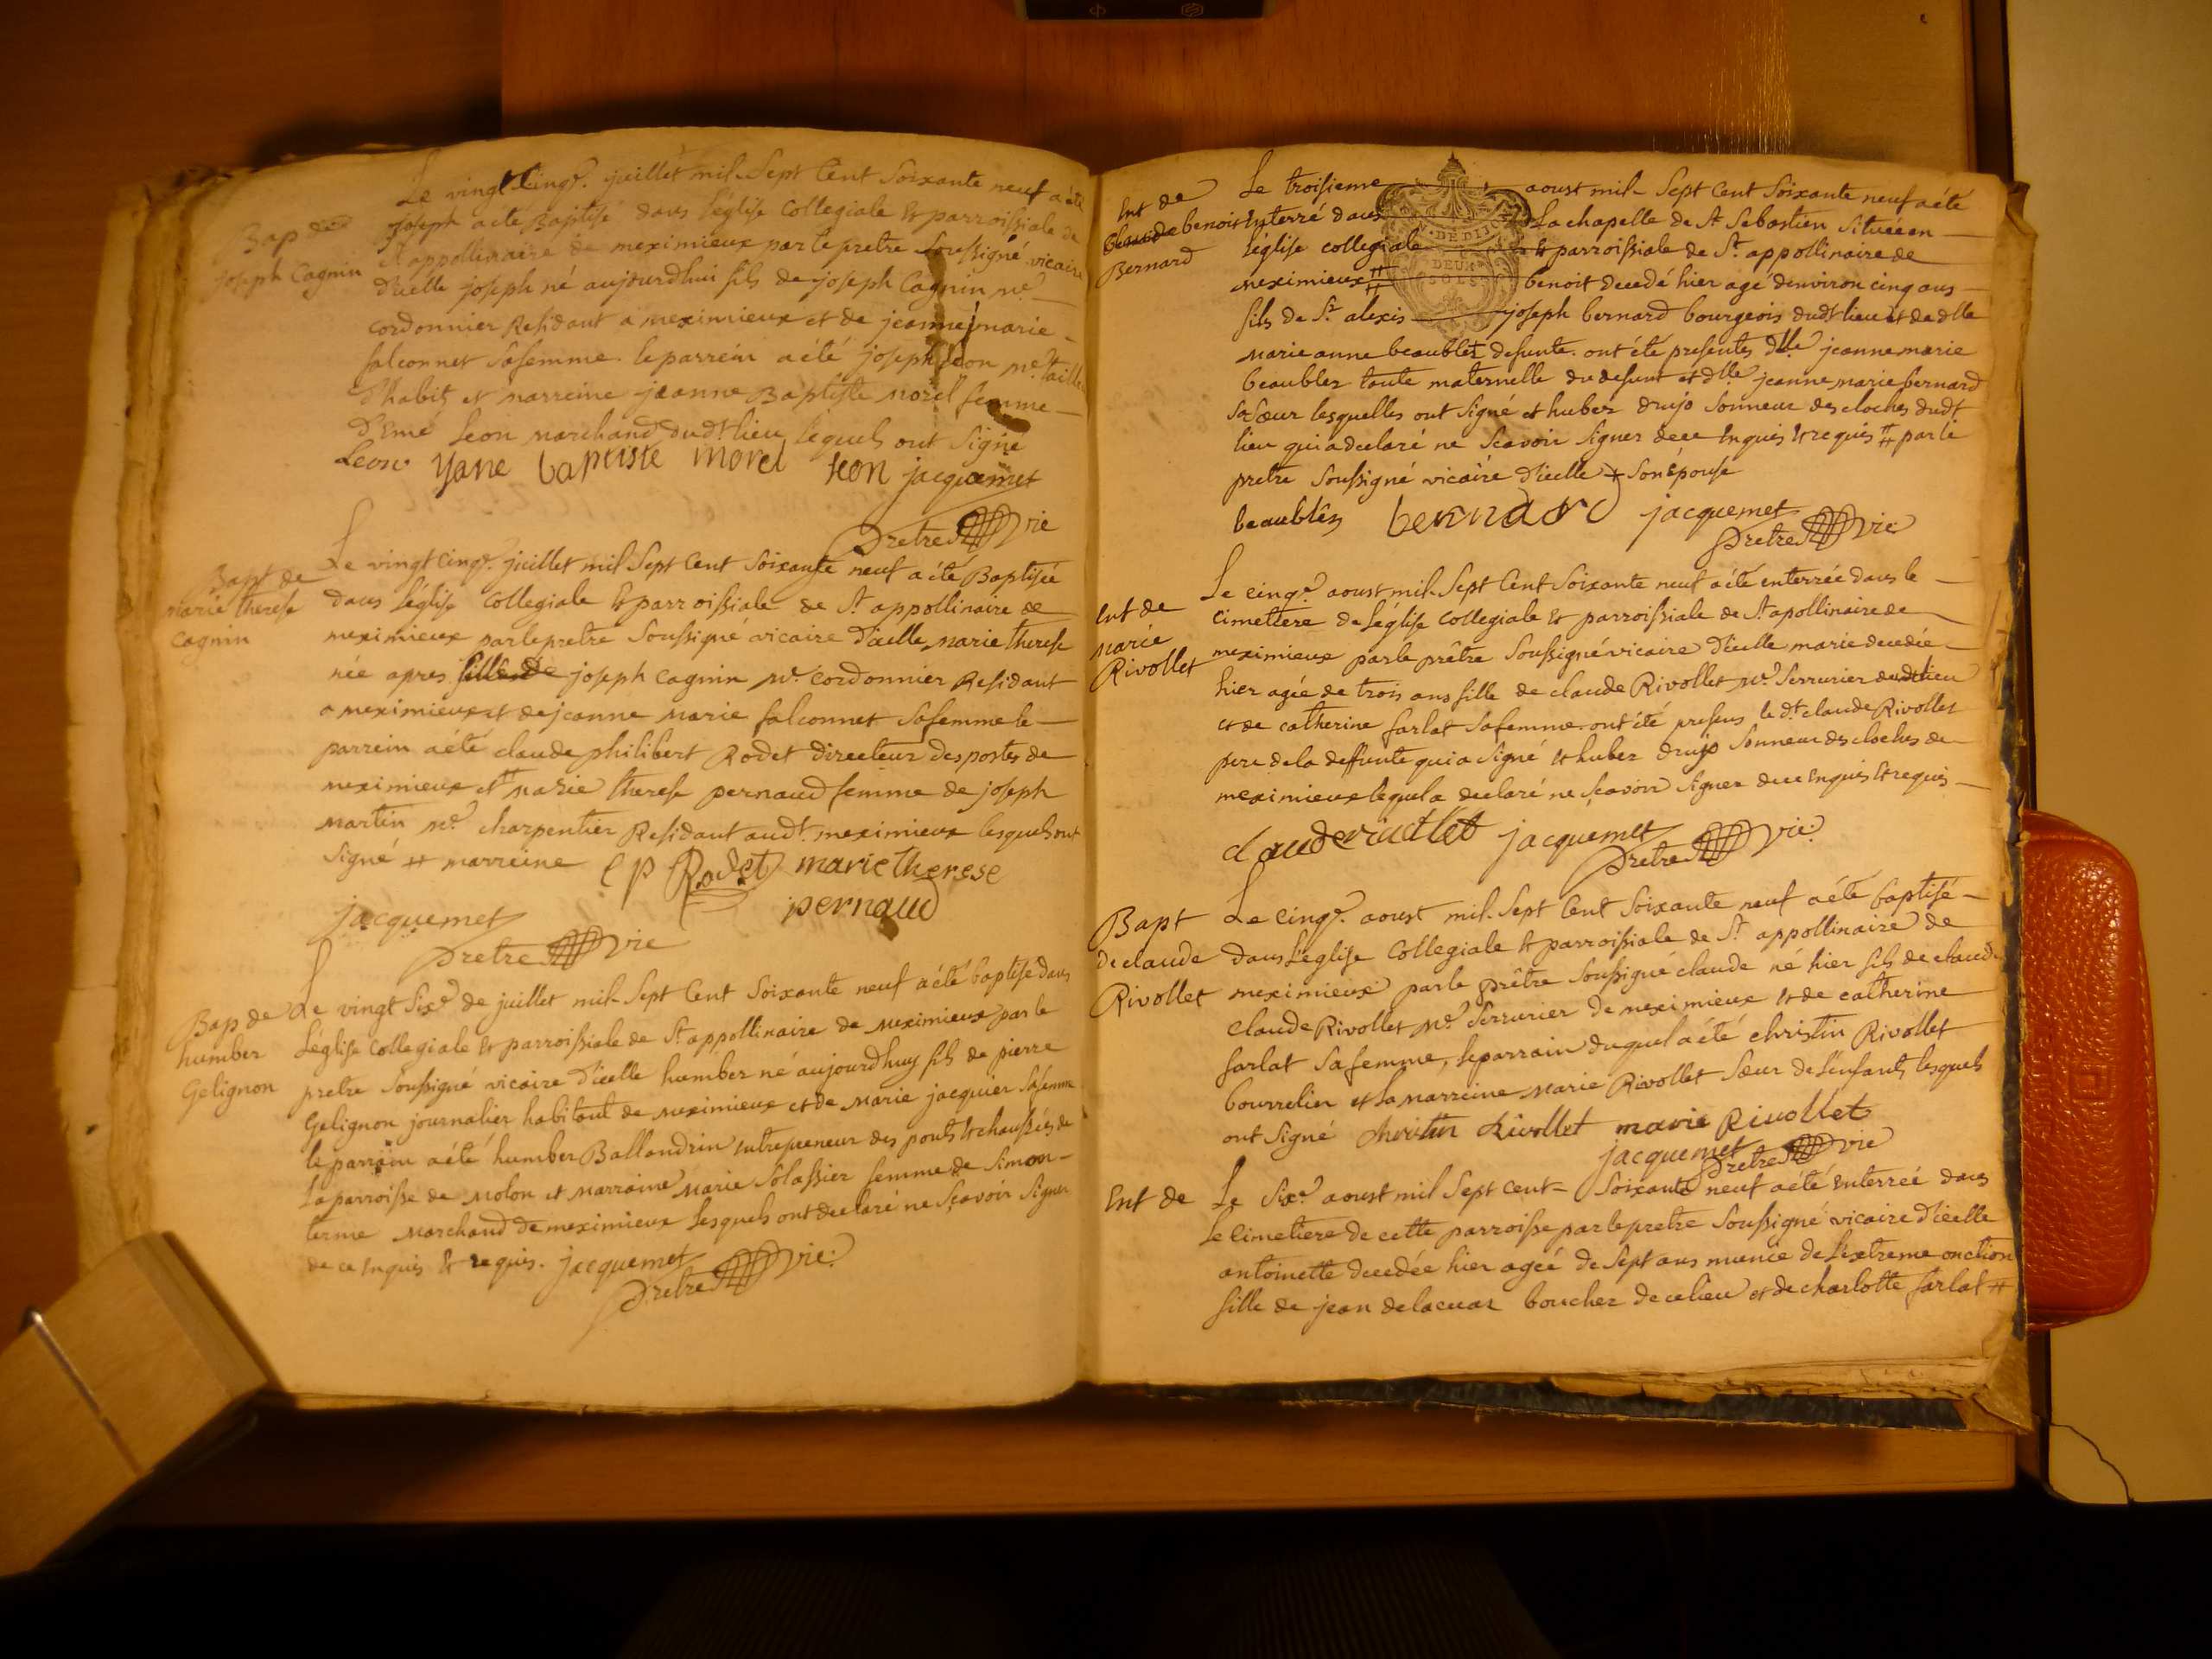 Le vingt Cinq.e juillet mil Sept Cent Soixante neuf a été
Bap de joseph a eté Baptisé dans l'église Collegiale & parroissiale de
joseph Cagnin St appollinaire de meximieux par le pretre soussigné vicaire
d'icelle joseph né aujourdhui fils de joseph Cagnin me
cordonnier Residant a meximieux et de jeanne marie
falconnet sa femme le parrein a été joseph Léon me tailleur
d'habits et marreine jeanne Baptiste morel femme
d'Emé Leon marchand dudt lieu lequels ont signé
Leon yane baptiste morel leon jacquemet
Pretre vic
Bapt de
marie therese
Cagnin
Le vingt Cinq.e juillet mil Sept Cent Soixante neuf a été Baptisée
dans l'église Collegiale & parroissiale de St appollinaire de
meximieux par le pretre Soussigné vicaire d'icelle marie therese
née apres fille de joseph Cagnin me cordonnier Residant
a meximieux et de jeanne marie falconnet sa femme le
parrein a été claude philibert Rodet directeur des postes de
meximieux et # marie therese pernaud femme de joseph
martin me charpentier Residant audt meximieux lesquels ont
signé # marreine C p Rodet marie therese
pernaud
jacquemet
Pretre vic
Bap de
humber
Gelignon
Le vingt Six.e de juillet mil Sept Cent Soixante neuf a été baptisé dans
l'église Collegiale & parroissiale de St appollinaire de meximieux par le
pretre Soussigné vicaire d'icelle humber né aujourdhuy fils de pierre
Gelignon journalier habitant de meximieux et de marie jacquier sa femme
le parrain a été humber Ballandrin entrepreneur des ponts & chaussées de
la parroisse de molon et marraine marie Solassier femme de Simon
terme marchand de meximieux lesquels ont declaré ne sçavoir signer
de ce enquis & requis. jacquemet
Pretre vic.
Ent de
benoit
Bernard
Le troisieme aoust mil Sept Cent Soixante neuf a été
Enterré dans la chapelle de St Sebastien située en
l'église collegiale & parroissiale de St appollinaire de
meximieux # benoit decedé hier agé d'environ cinq ans
fils de Sr alexis joseph bernard bourgeois dudt lieu et de dlle
G. DE DIJON
DEUX
SOLS
marie anne beaublez defunte. ont été presentes dlle jeanne marie
beaublez tante maternelle du defunt et dlle jeanne marie bernard
sa sœur lesquelles ont signé et huber drujo sonneur des cloches dudt
lieu qui a declaré ne sçavoir signer de ce enquis & requis # par le
pretre soussigné vicaire d'icelle + son épouse
beaublez bernard jacquemet
Pretre vic
Ent de
marie
Rivollet
Le cinq.e aoust mil Sept Cent Soixante neuf a été enterrée dans le
cimettere de l'église Collegiale & parroissiale de St apollinaire de
meximieux par le prêtre Soussigné vicaire d'icelle marie decedée
hier agée de trois ans fille de claude Rivollet me serrurier dudt lieu
et de catherine farlat sa femme. ont été presens le dt claude Rivollet
pere de la deffunte qui a signé & huber drujo sonneur des cloches de
meximieux lequel a declaré ne sçavoir signer de ce enquis & requis
claude riuollet jacquemet
Pretre vic.
Bapt
de claude
Rivollet
Le cinq.e aoust mil Sept Cent Soixante neuf a été baptisé
dans l'église Collegiale & parroissiale de St appollinaire de
meximieux par le prêtre soussigné claude né hier fils de claude
claude Rivollet me serrurier de meximieux & de catherine
farlat sa femme, le parrain duquel a été christin Rivollet
bourrelier et la marreine marie Rivollet sœur de l'enfant, lesquels
ont signé christin Rivollet marie Riuollet
jacquemet
Pretre vic
Ent de
Le Six.e aoust mil Sept Cent Soixante neuf a été enterrée dans
le cimetiere de cette parroisse par le pretre soussigné vicaire d'icelle
antoinette decedée hier agée de Sept ans munie de l'extreme onction
fille de jean delacuaz boucher de ce lieu et de charlotte farlat #